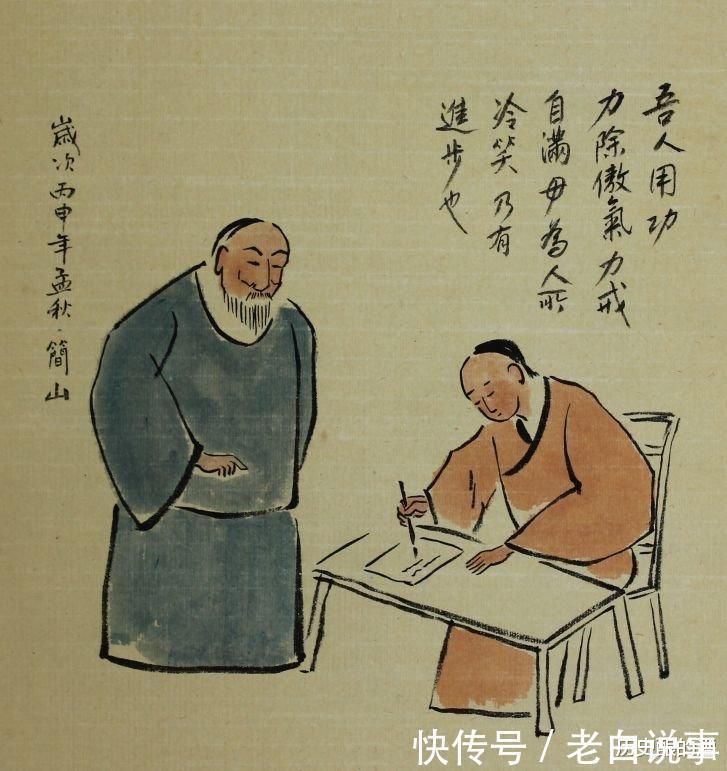 吾人用功
力除傲氣力戒
自滿毋為人所
冷笑乃有
進步也
歲次丙申年孟秋·簡山
快传号 / 老白说事